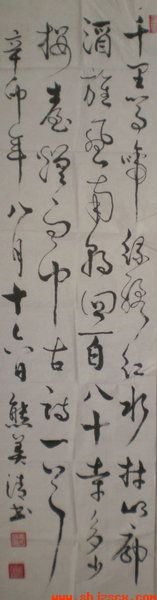 千里莺啼绿映红水村廓
酒旗风南朝四百八十寺多少
楼台烟雨中古诗一首
辛卯年八月十六日熊美清书